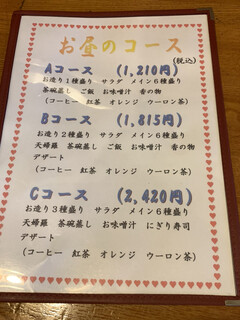 お昼のコース
(税込)
Aコース (1,210円)
お造り1種盛り サラダ メイン6種盛り
茶碗蒸し ご飯 お味噌汁 香の物
(コーヒー 紅茶 オレンジ ウーロン茶)
Bコース (1,815円)
お造り2種盛り サラダ メイン6種盛り
天婦羅 茶碗蒸し ご飯 お味噌汁 香の物
デザート
(コーヒー 紅茶 オレンジ ウーロン茶)
Cコース (2,420円)
お造り3種盛り サラダ メイン6種盛り
天婦羅 茶碗蒸し お味噌汁 にぎり寿司
デザート
(コーヒー 紅茶 オレンジ ウーロン茶)